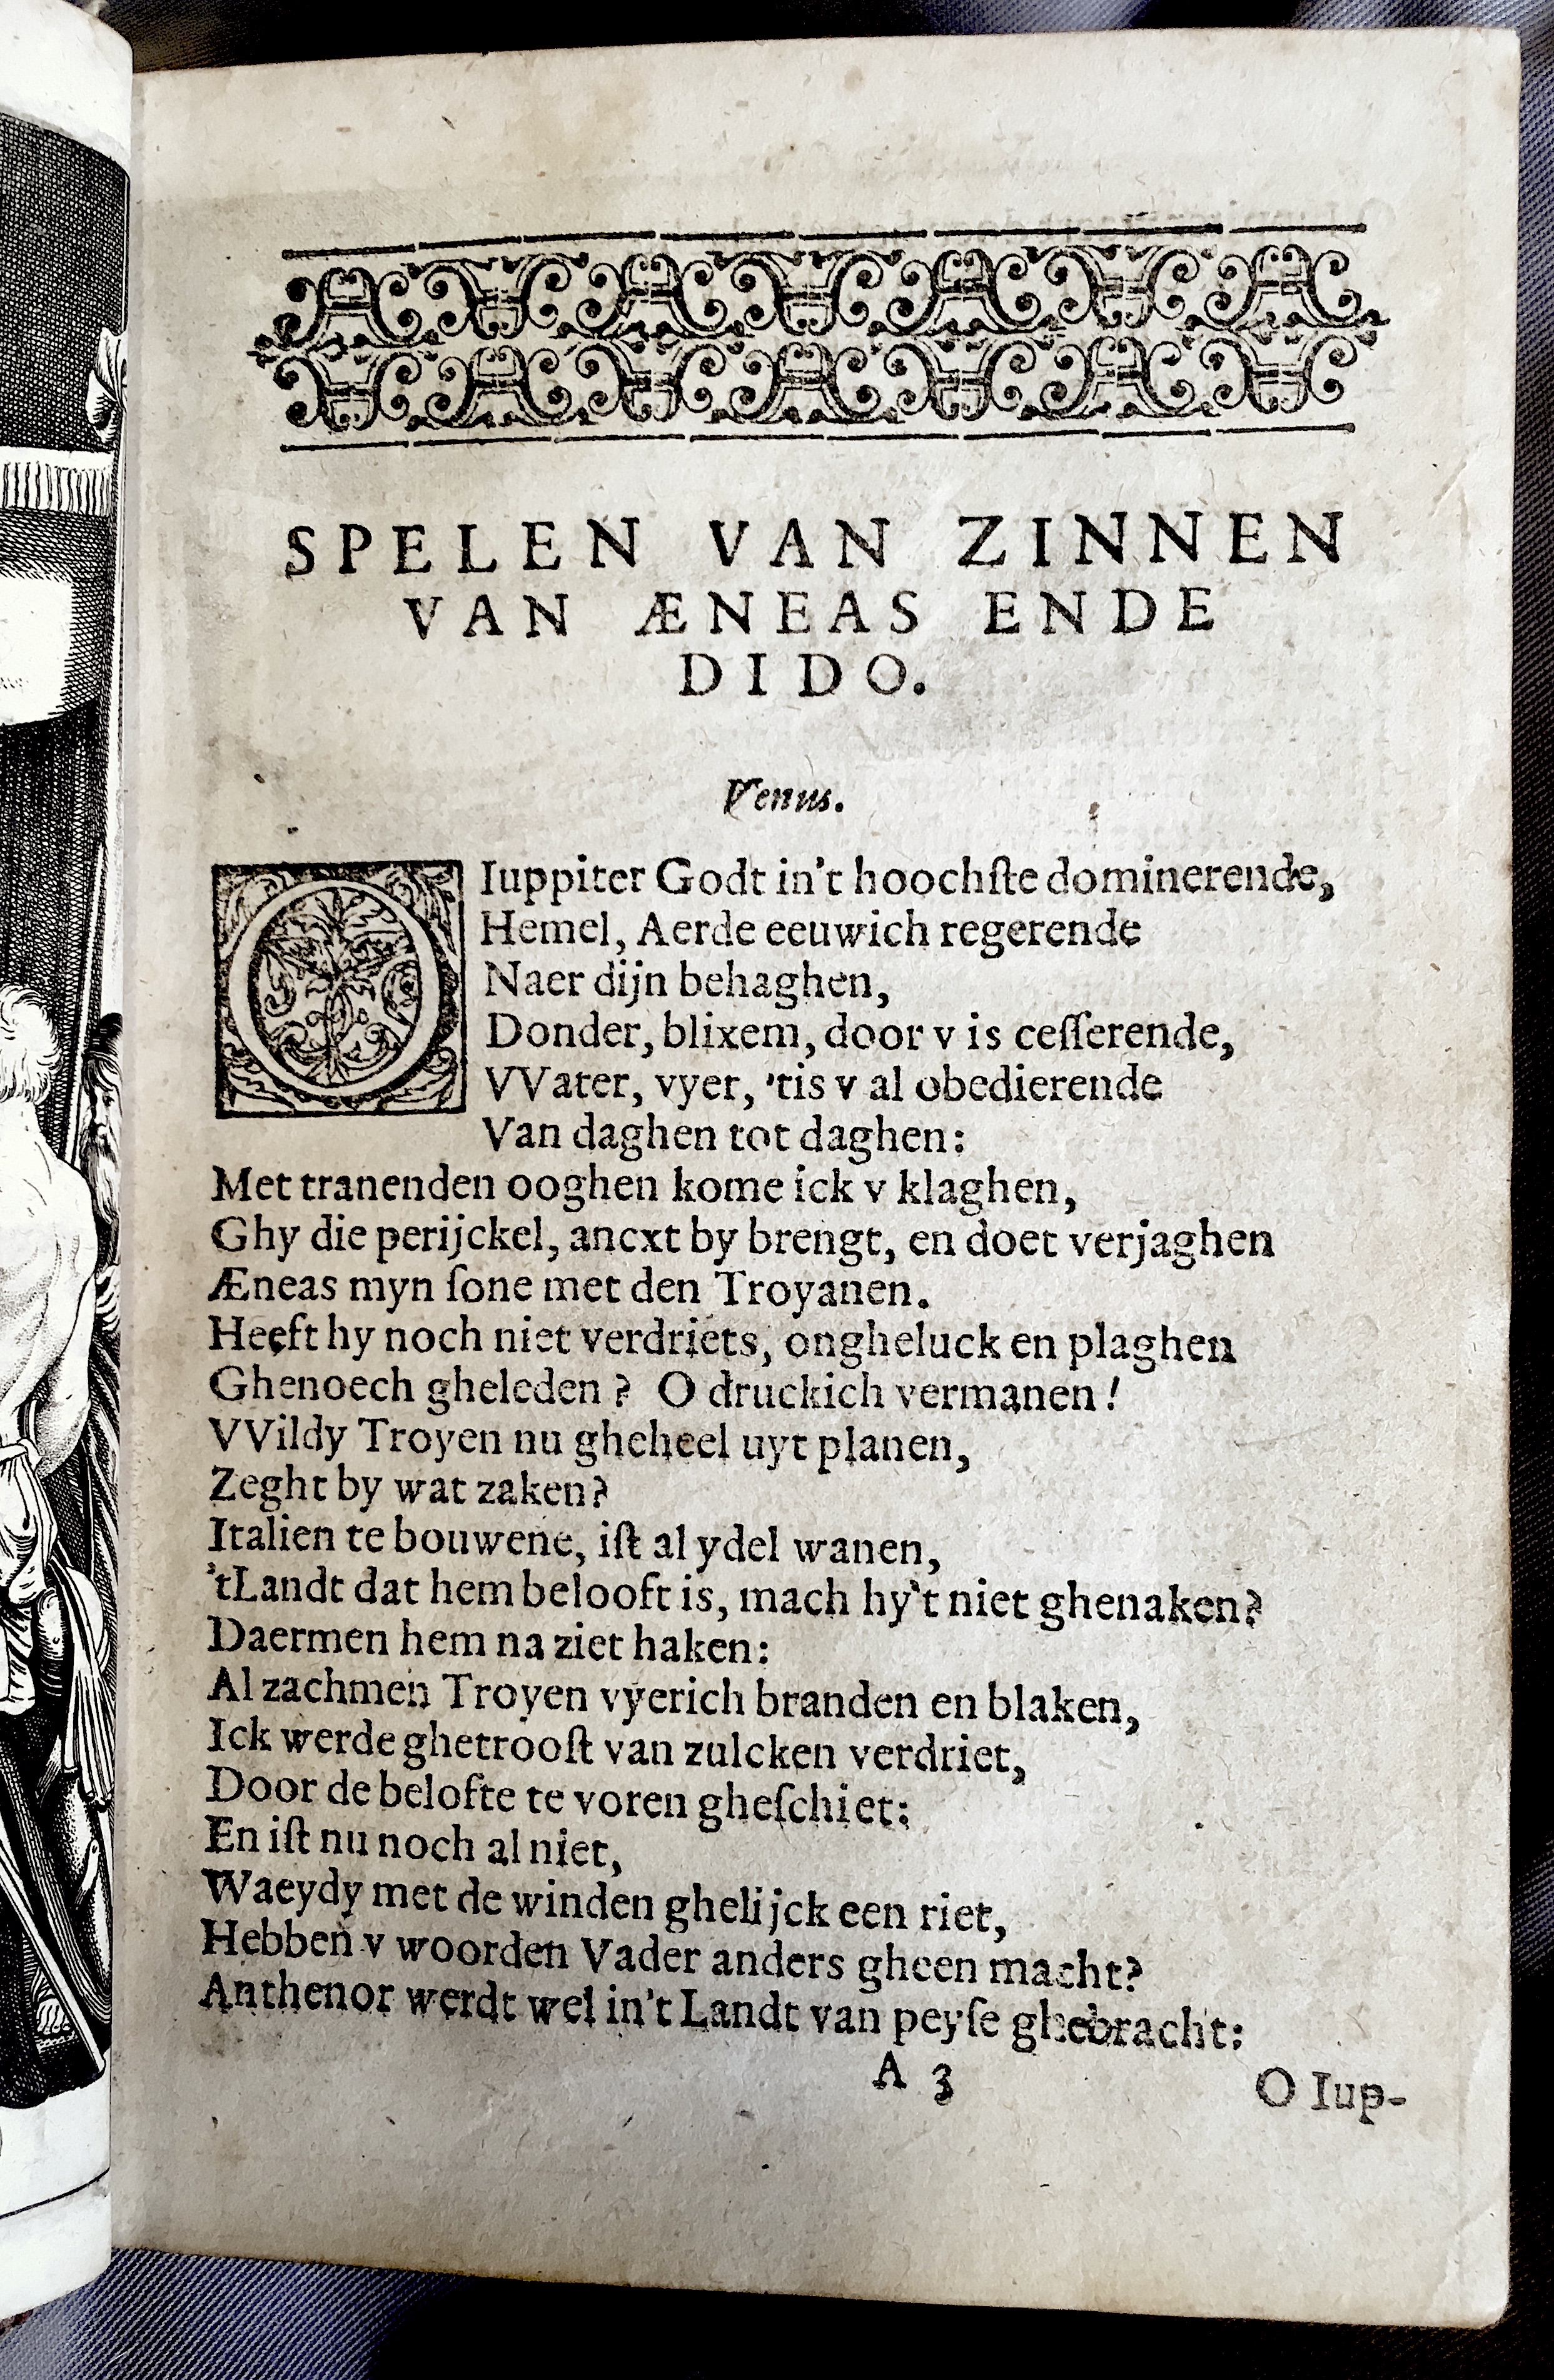 SPELEN VAN ZINNEN
VAN ÆNEAS ENDE
DIDO.
Venus.
O Iuppiter Godt in't hoochſte dominerende,
Hemel, Aerde eeuwich regerende
Naer dijn behaghen,
Donder, blixem, door v is ceſſerende,
VVater, vyer, 'tis v al obedierende
Van daghen tot daghen:
Met tranenden ooghen kome ick v klaghen,
Ghy die perijckel, ancxt by brengt, en doet verjaghen
Æneas myn ſone met den Troyanen.
Heeft hy noch niet verdriets, ongheluck en plaghen
Ghenoech gheleden? O druckich vermanen!
VVildy Troyen nu gheheel uyt planen,
Zeght by wat zaken?
Italien te bouwene, iſt al ydel wanen,
'tLandt dat hem belooft is, mach hy't niet ghenaken?
Daermen hem na ziet haken:
Al zachmen Troyen vyerich branden en blaken,
Ick werde ghetrooſt van zulcken verdriet,
Door de belofte te voren gheſchiet:
En iſt nu noch al niet,
Waeydy met de winden ghelijck een riet,
Hebben v woorden Vader anders gheen macht?
Anthenor werdt wel in't Landt van peyſe ghebracht:
A 3
O Iup-